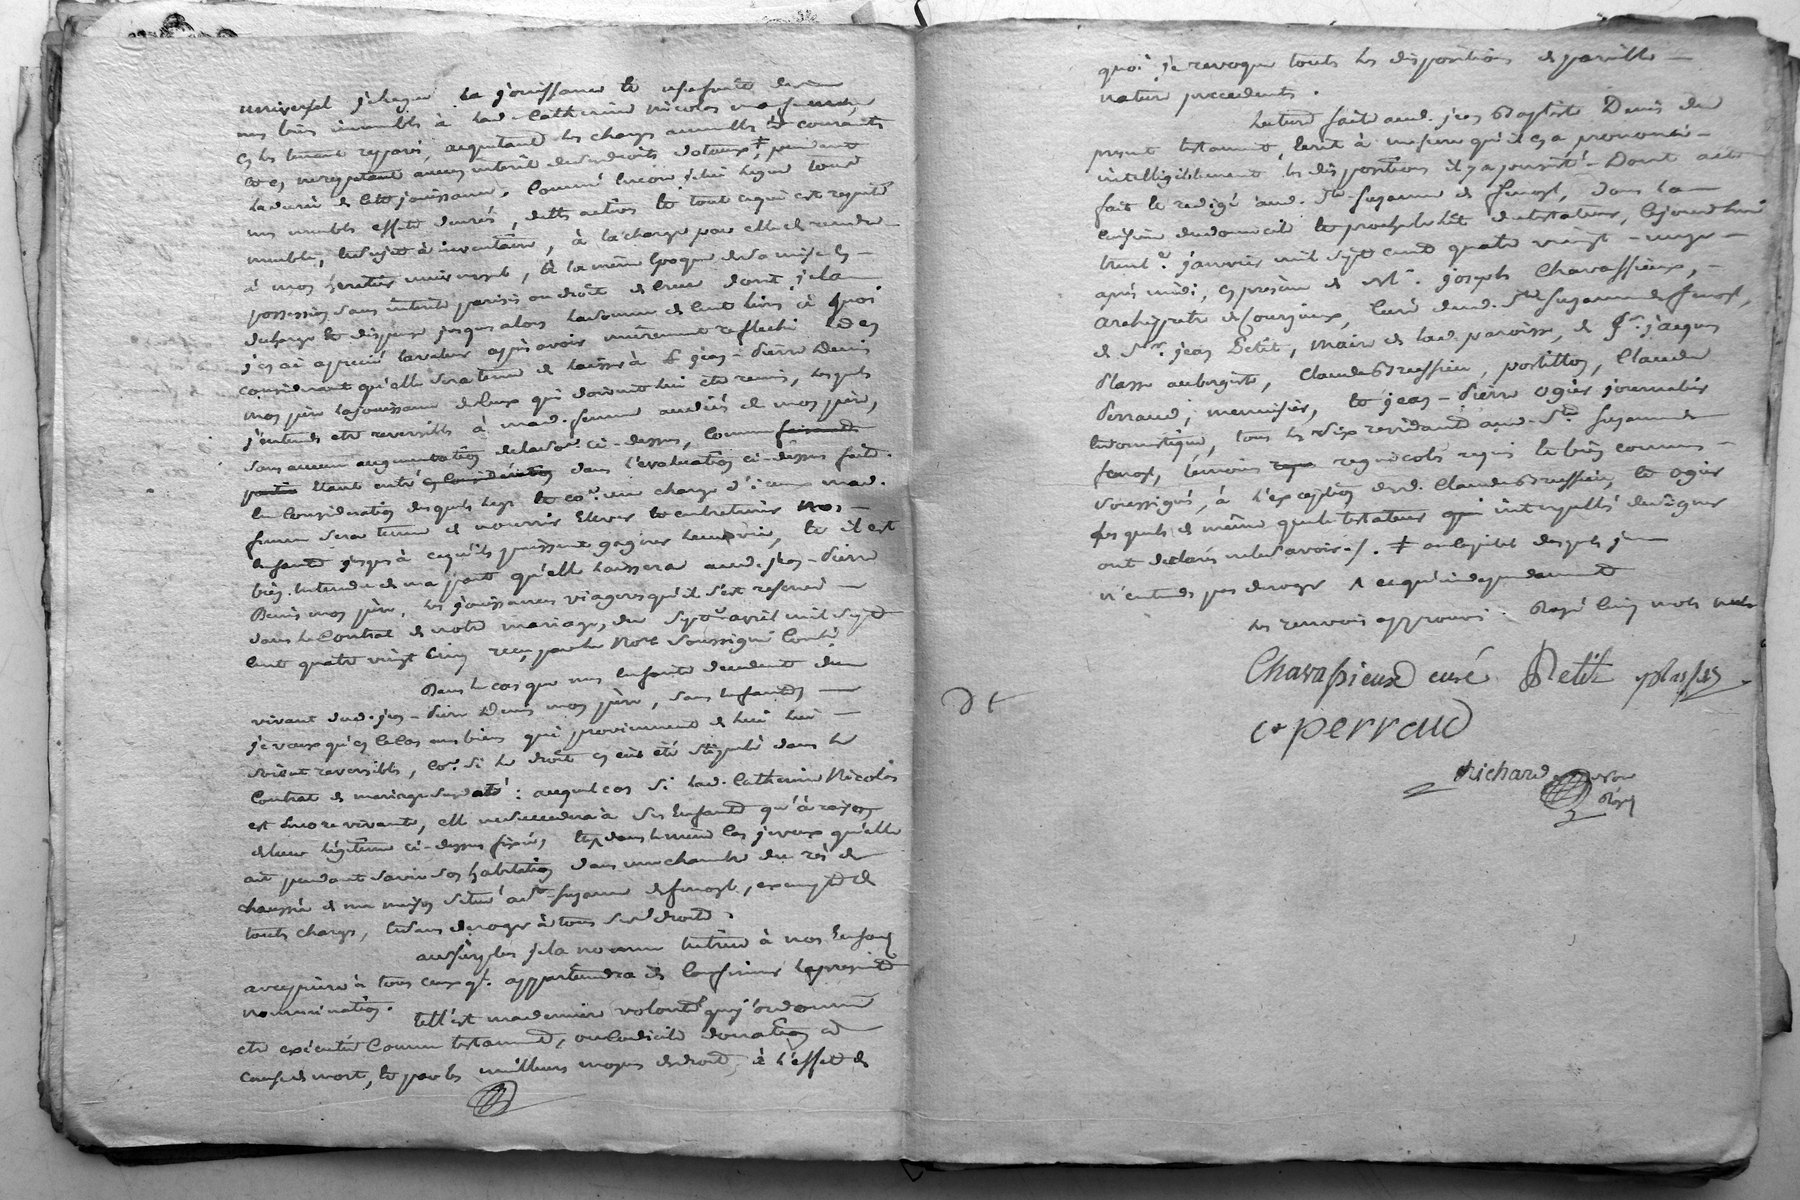 universel j'legue la jouissance et usufruit de
mes biens immeubles à lad. Catherine Nicolas ma femme,
en les tenant reparés, acquittant les charges annuelles et courants
et en n'exceptant aucun interêt de ses droits dotaux ‡, pendant
la durée de cette jouissance. Comme encore je lui legue tous
mes meubles effets denrés, dettes actives et tout ce qui est reputé
meuble, et sujet à inventaire, à la charge par elle de rendre
à mon heritier universel, à la même époque de sa mise en
possession sans interêt parisis ou droit de crue dont je la
decharge et dispense jusques alors la somme de cent livres à quoi
j'en ai apprecié la valeur après avoir murement reflechi et en
considerant qu'elle sera tenue de laisser à Sr jean-Pierre Denis
mon père la jouissance de ceux qui doivent lui être remis, lesquels
j'entends être reversibles à mad. femme au decès de mon père,
sans aucune augmentation de la somme ci-dessus, comme faisant
partie étant entré en considération dans l'évaluation ci-dessus faite.
en considération desquels legs et co.e une charge d'iceux mad.
femme sera tenue de nourrir élever et entretenir nos
enfants jusqu'à ce qu'ils puissent gagner leur vie, et il est
bien entendu de ma part qu'elle laissera aud. jean-Pierre
Denis mon père, les jouissances viageres qu'il s'est reservé
dans le Contrat de notre mariage, du sept avril mil sept
cent quatre vingt cinq reçu par le Nore soussigné Contlé
Dans le cas que mes enfants decedent du
vivant dud. jean-Pierre Denis mon père, sans enfants
je veux qu'en ce cas mes biens qui proviennent de lui lui
soient reversibles, co.e si le droit en eut été stipulé dans le
Contrat de mariage susdaté : auquel cas si lad. Catherine Nicolas
est encore vivante, elle ne succedera à ses Enfants qu'à raison
de leur légitime ci-dessus fixée, et dans le même cas je veux qu'elle
ait pendant sa vie son habitation dans une chambre du rés de
chaussée de ma maison située à Ste-Suzanne de fenost, exempte de
toutes charges, et sans deroger à tous ses droits.
au surplus je la nomme tutrice à nos Enfans
avec priere à tous ceux qu'il appartiendra de confirmer la presente
nomination.
telle est ma derniere volonté que j'ordonne
être exécutée Comme testament, ou Codicile donation à
cause de mort, et par les meilleurs moyens de droit, à l'effet de
quoi je revoque toutes les dispositions de pareille
nature precedentes.
Lecture faite aud. jean Baptiste Denis du
present testament, écrit à mesure qu'il en a prononcé
intelligiblement les dispositions il y a persisté. Dont acte
fait et redigé aud. Ste Suzanne de fenost, dans la
cuisine du domicile et proche le lit du testateur, cejourd'hui
trente janvier mil sept cent quatre vingt-onze
après midi, en présence de Mre joseph Chavassieux,
archiprêtre de Courzieux, Curé dud. Ste Suzanne de fenost,
de Sr. jean Petit, Maire de lad. paroisse, de Sr. jacques
Plasse aubergiste, Claude Bressieu, postillon, Claude
Perraud, menuisier, et jean-Pierre ogier journalier
et domestique, tous les six residants aud. Ste Suzanne de
fenost, témoins reqs regnicoles requis et bien connus
soussignés, à l'exception desd. Claude Bressieu, et ogier
lesquels de même que le testateur qui interpellés de signer
ont declarés ne le savoir ./. ‡ au capital desquels je
n'entends pas deroger ^ ce qu'independamment
les renvois approuvés : Rayé Cinq mots nuls
Chavassieux curé Petit plasse
Ce perraud
Richard